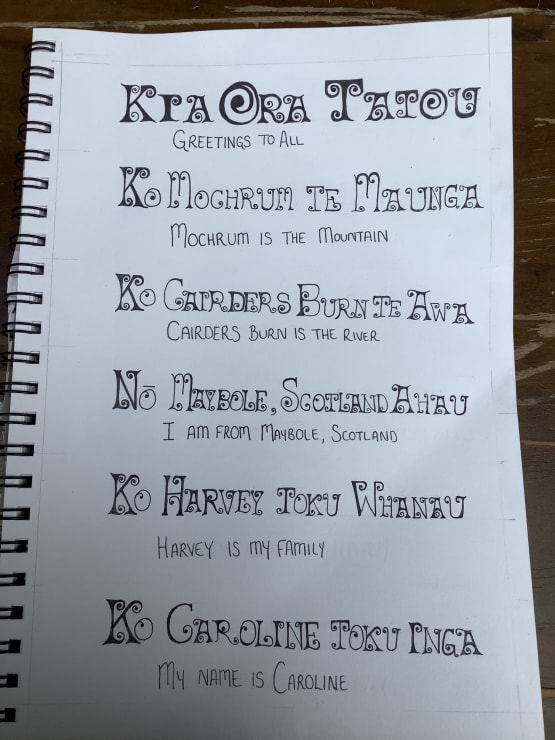 Kia Ora Tatou
Greetings to All
Ko Mochrum te Maunga
Mochrum is the Mountain
Ko Cairders Burn te Awa
Cairders Burn is the River
Nō Maybole, Scotland Ahau
I am from Maybole, Scotland
Ko Harvey toku Whanau
Harvey is my family
Ko Caroline toku Inga
My name is Caroline